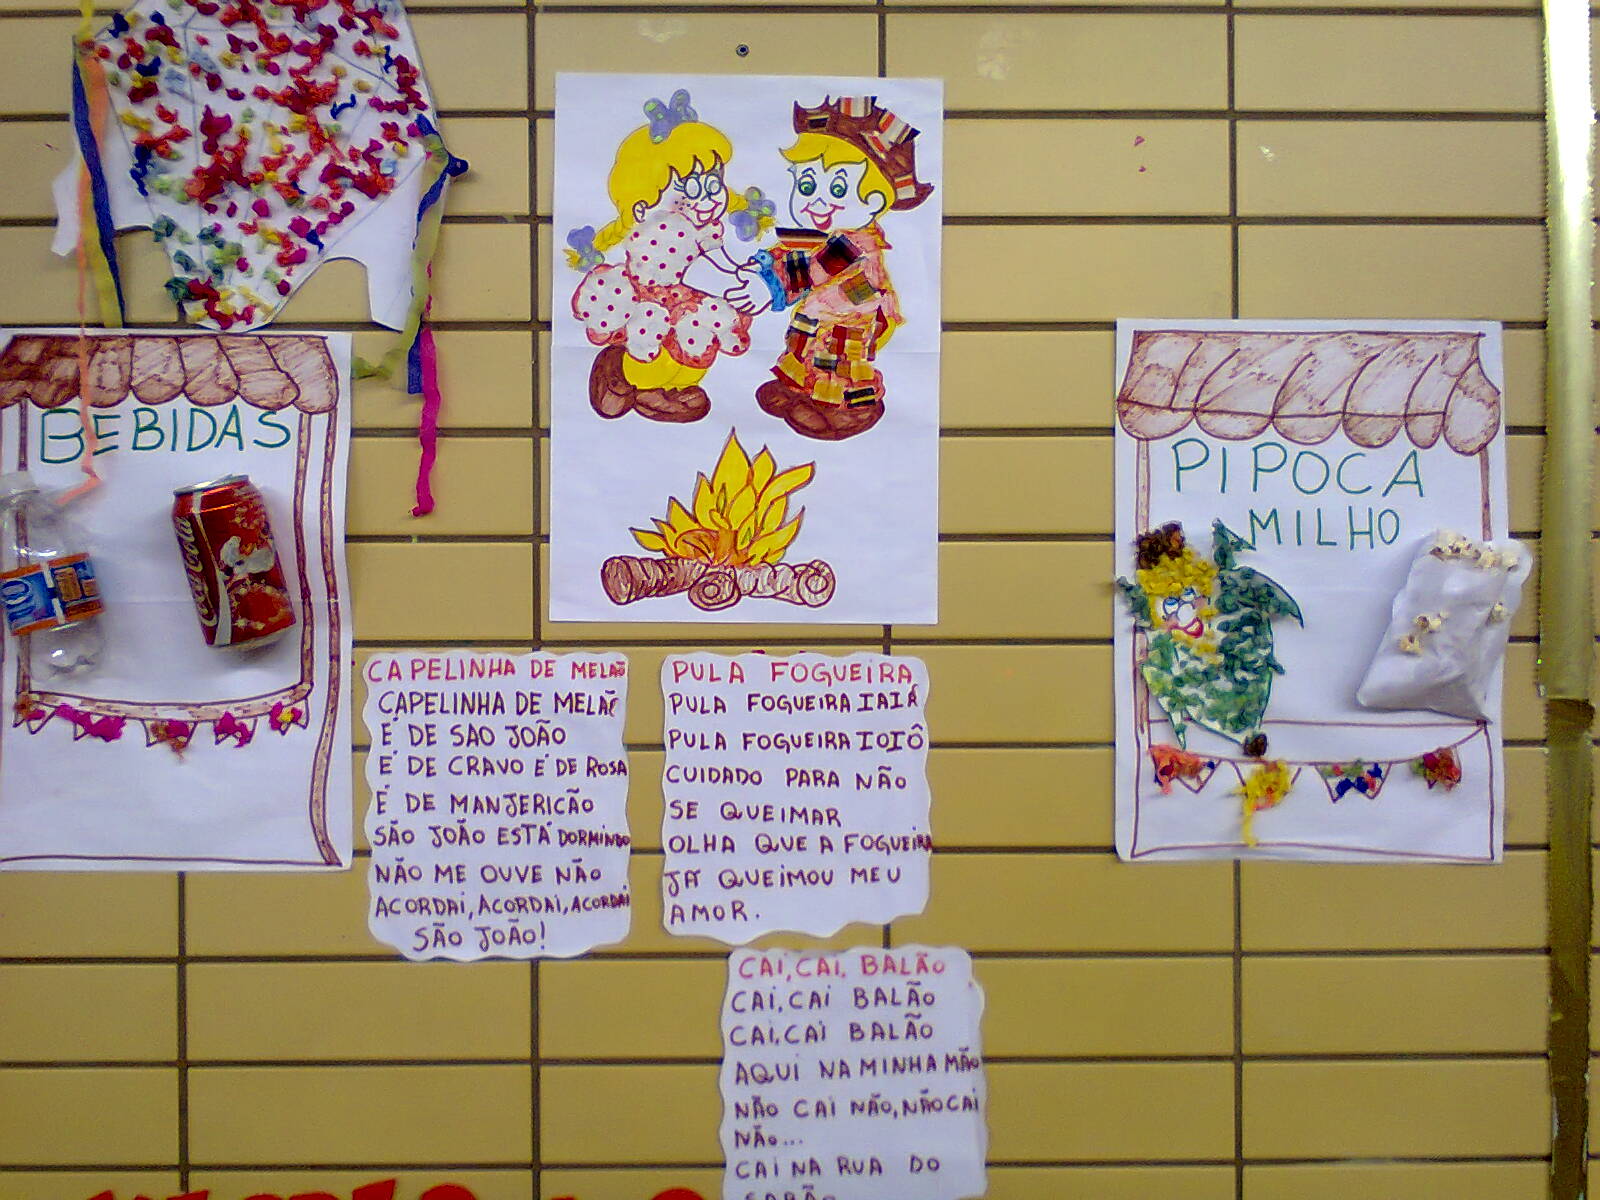 BEBIDAS
Coca-Cola
PIPOCA
MILHO
CAPELINHA DE MELAÕ
CAPELINHA DE MELAÕ
É DE SAO JOÃO
É DE CRAVO É DE ROSA
É DE MANJERICÃO
SÃO JOÃO ESTÁ DORMINDO
NÃO ME OUVE NÃO
ACORDAI, ACORDAI, ACORDAI
SÃO JOÃO!
PULA FOGUEIRA
PULA FOGUEIRA IAIÁ
PULA FOGUEIRA IOIÔ
CUIDADO PARA NÃO
SE QUEIMAR
OLHA QUE A FOGUEIRA
JÁ QUEIMOU MEU
AMOR.
CAI, CAI, BALÃO
CAI, CAI BALÃO
CAI, CAI BALÃO
AQUI NA MINHA MÃO
NÃO CAI NÃO, NÃO CAI
NÃO...
CAI NA RUA DO
SABÃO